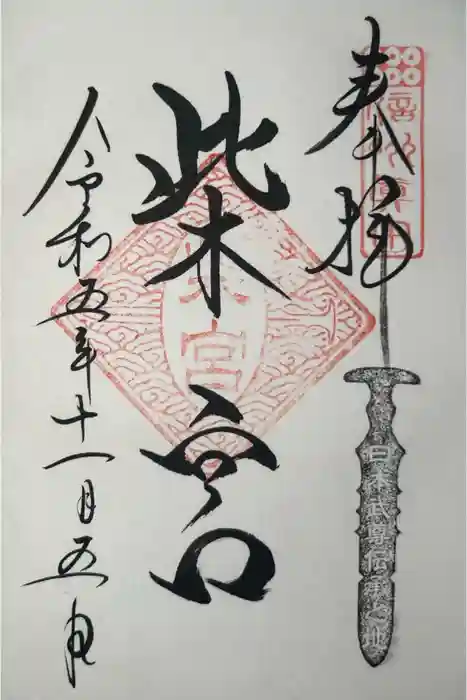 奉拝
日本武尊伝承之址
柴宮
柴宮
令和五年十一月五日